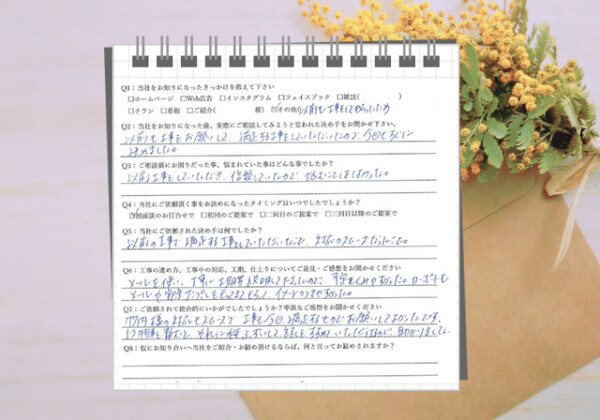 Q1：当社をお知りになったきっかけを教えて下さい
□ホームページ □Web広告 □インスタグラム □フェイスブック □雑誌( )
□チラシ □看板 □ご紹介( 様) その他(以前も工事をしてもらったため
Q2：当社をお知りになった後、実際にご相談してみようと思われた決め手をお聞かせ下さい。
以前も工事をお願いして、満足する工事をしていただいたので、今回もすぐに
決めました。
Q3：ご相談前にお困りだった事、悩まれていた事はどんな事でしたか？
以前工事をしていただき、信頼していたので、悩むことはなかった。
Q4：当社にご依頼頂く事をお決めになったタイミングはいつでしたでしょうか？
初回面談のお打合せで □初回のご提案で □二回目のご提案で □三回目以降のご提案で
Q5：当社にご依頼された決め手は何でしたか？
以前の工事で満足する工事をしていただいたこと、対応のスムーズだったこと。
Q6：工事の進め方、工事中の対応、工期、仕上りについてご意見・ご感想をお聞かせください
メールを使い、丁寧に
メールや
Q7：ご依頼されて総合的にいかがでしたでしょうか？率直なご感想をお聞かせください
対応もスムーズで、工事も今回も満足するものでお願いしてよかったです。
Q8：仮にお知り合いへ当社をご紹介・お勧め頂けるならば、何と言ってお勧めされますか？